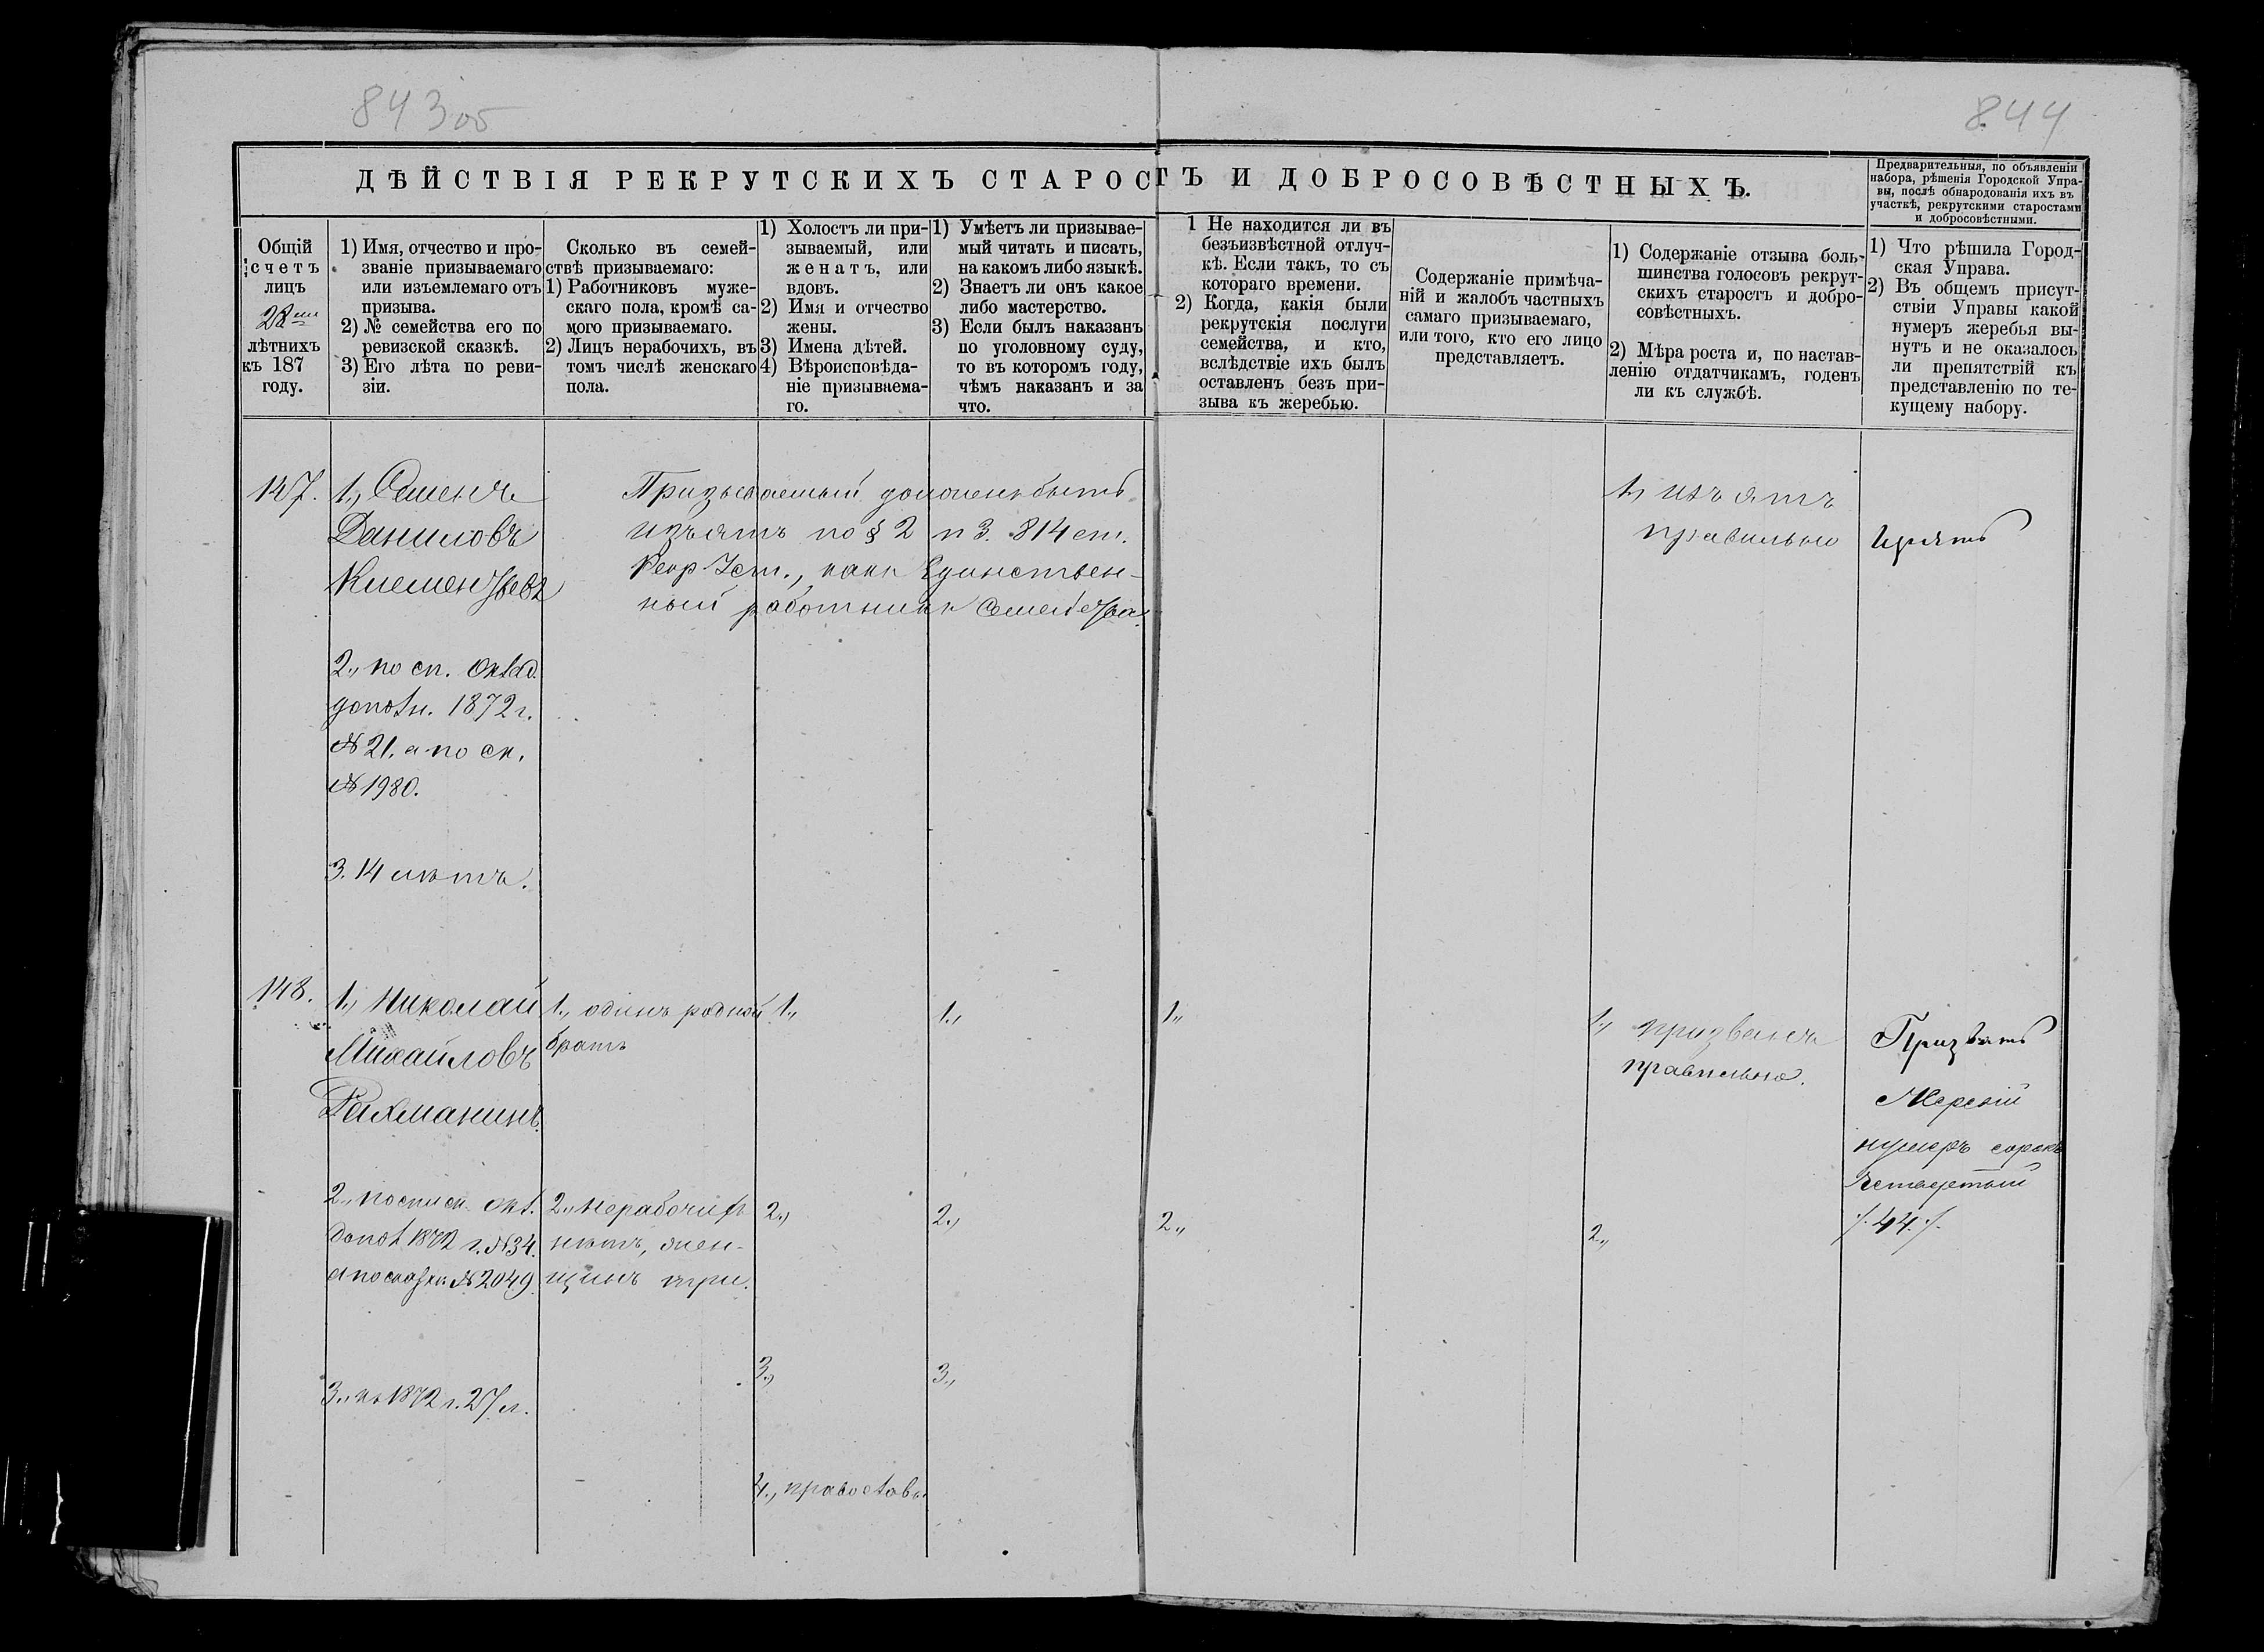 843 об
844
ДѢЙСТВІЯ РЕКРУТСКИХЪ СТАРОСТЪ И ДОБРОСОВѢСТНЫХЪ.
Предварительныя, по объявленіи
набора, рѣшенія Городской Упра-
вы, послѣ обнародованія ихъ въ
участкѣ, рекрутскими старостами
и добросовѣстными.
Общій
счетъ
лицъ
22
лѣтнихъ
къ 187
году.
1) Имя, отчество и про-
званіе призываемаго
или изъемлемаго отъ
призыва.
2) № семейства его по
ревизской сказкѣ.
3) Его лѣта по реви-
зіи.
Сколько въ семей-
ствѣ призываемаго:
1) Работниковъ муже-
скаго пола, кромѣ са-
мого призываемаго.
2) Лицъ нерабочихъ, въ
томъ числѣ женскаго
пола.
1) Холостъ ли при-
зываемый, или
женатъ, или
вдовъ.
2) Имя и отчество
жены.
3) Имена дѣтей.
4) Вѣроисповѣда-
ніе призываема-
го.
1) Умѣетъ ли призывае-
мый читать и писать,
на какомъ либо языкѣ.
2) Знаетъ ли онъ какое
либо мастерство.
3) Если былъ наказанъ
по уголовному суду,
то въ которомъ году,
чѣмъ наказанъ и за
что.
1 Не находится ли въ
безъизвѣстной отлуч-
кѣ. Если такъ, то съ
котораго времени.
2) Когда, какія были
рекрутскія послуги
семейства, и кто,
вслѣдствіе ихъ былъ
оставленъ безъ при-
зыва къ жеребью.
Содержаніе примѣча-
ній и жалобъ частныхъ
самаго призываемаго,
или того, кто его лицо
представляетъ.
1) Содержаніе отзыва боль-
шинства голосовъ рекрут-
скихъ старостъ и добро-
совѣстныхъ.
2) Мѣра роста и, по настав-
ленію отдатчикамъ, годенъ
ли къ службѣ.
1) Что рѣшила Город-
ская Управа.
2) Въ общемъ присут-
ствіи Управы какой
нумеръ жеребья вы-
нутъ и не оказалось
ли препятствій къ
представленію по те-
кущему набору.
147.
1., Семенъ
Даниловъ
Клементьевъ
2., по сп. Оклад.
дополн. 1872 г.
№ 21. а по ск.
№ 1980.
3. 14 лѣтъ.
Призываемый долженъ быть
изъятъ по § 2 п 3. 814 ст.
Рекр Уст., какъ Единствен-
ный работникъ Семейства.
1., изъятъ
правильно
Изъять
148.
1., Николай
Михайловъ
Рахманинъ.
2., по списк. окл.
допол 1872 г. № 34.
а по сказкѣ № 2049
3., къ 1872 г. 27 л.
1., одинъ родной
братъ
2., нерабочихъ
нѣтъ, жен-
щинъ три.
1.,
2.,
3.,
4., православн
1.,
2.,
3.,
1.,
2.,
1., призванъ
правильно.
2.,
Призвать
Жеребій
нумеръ сорокъ
Четвертый
/. 44 ./.